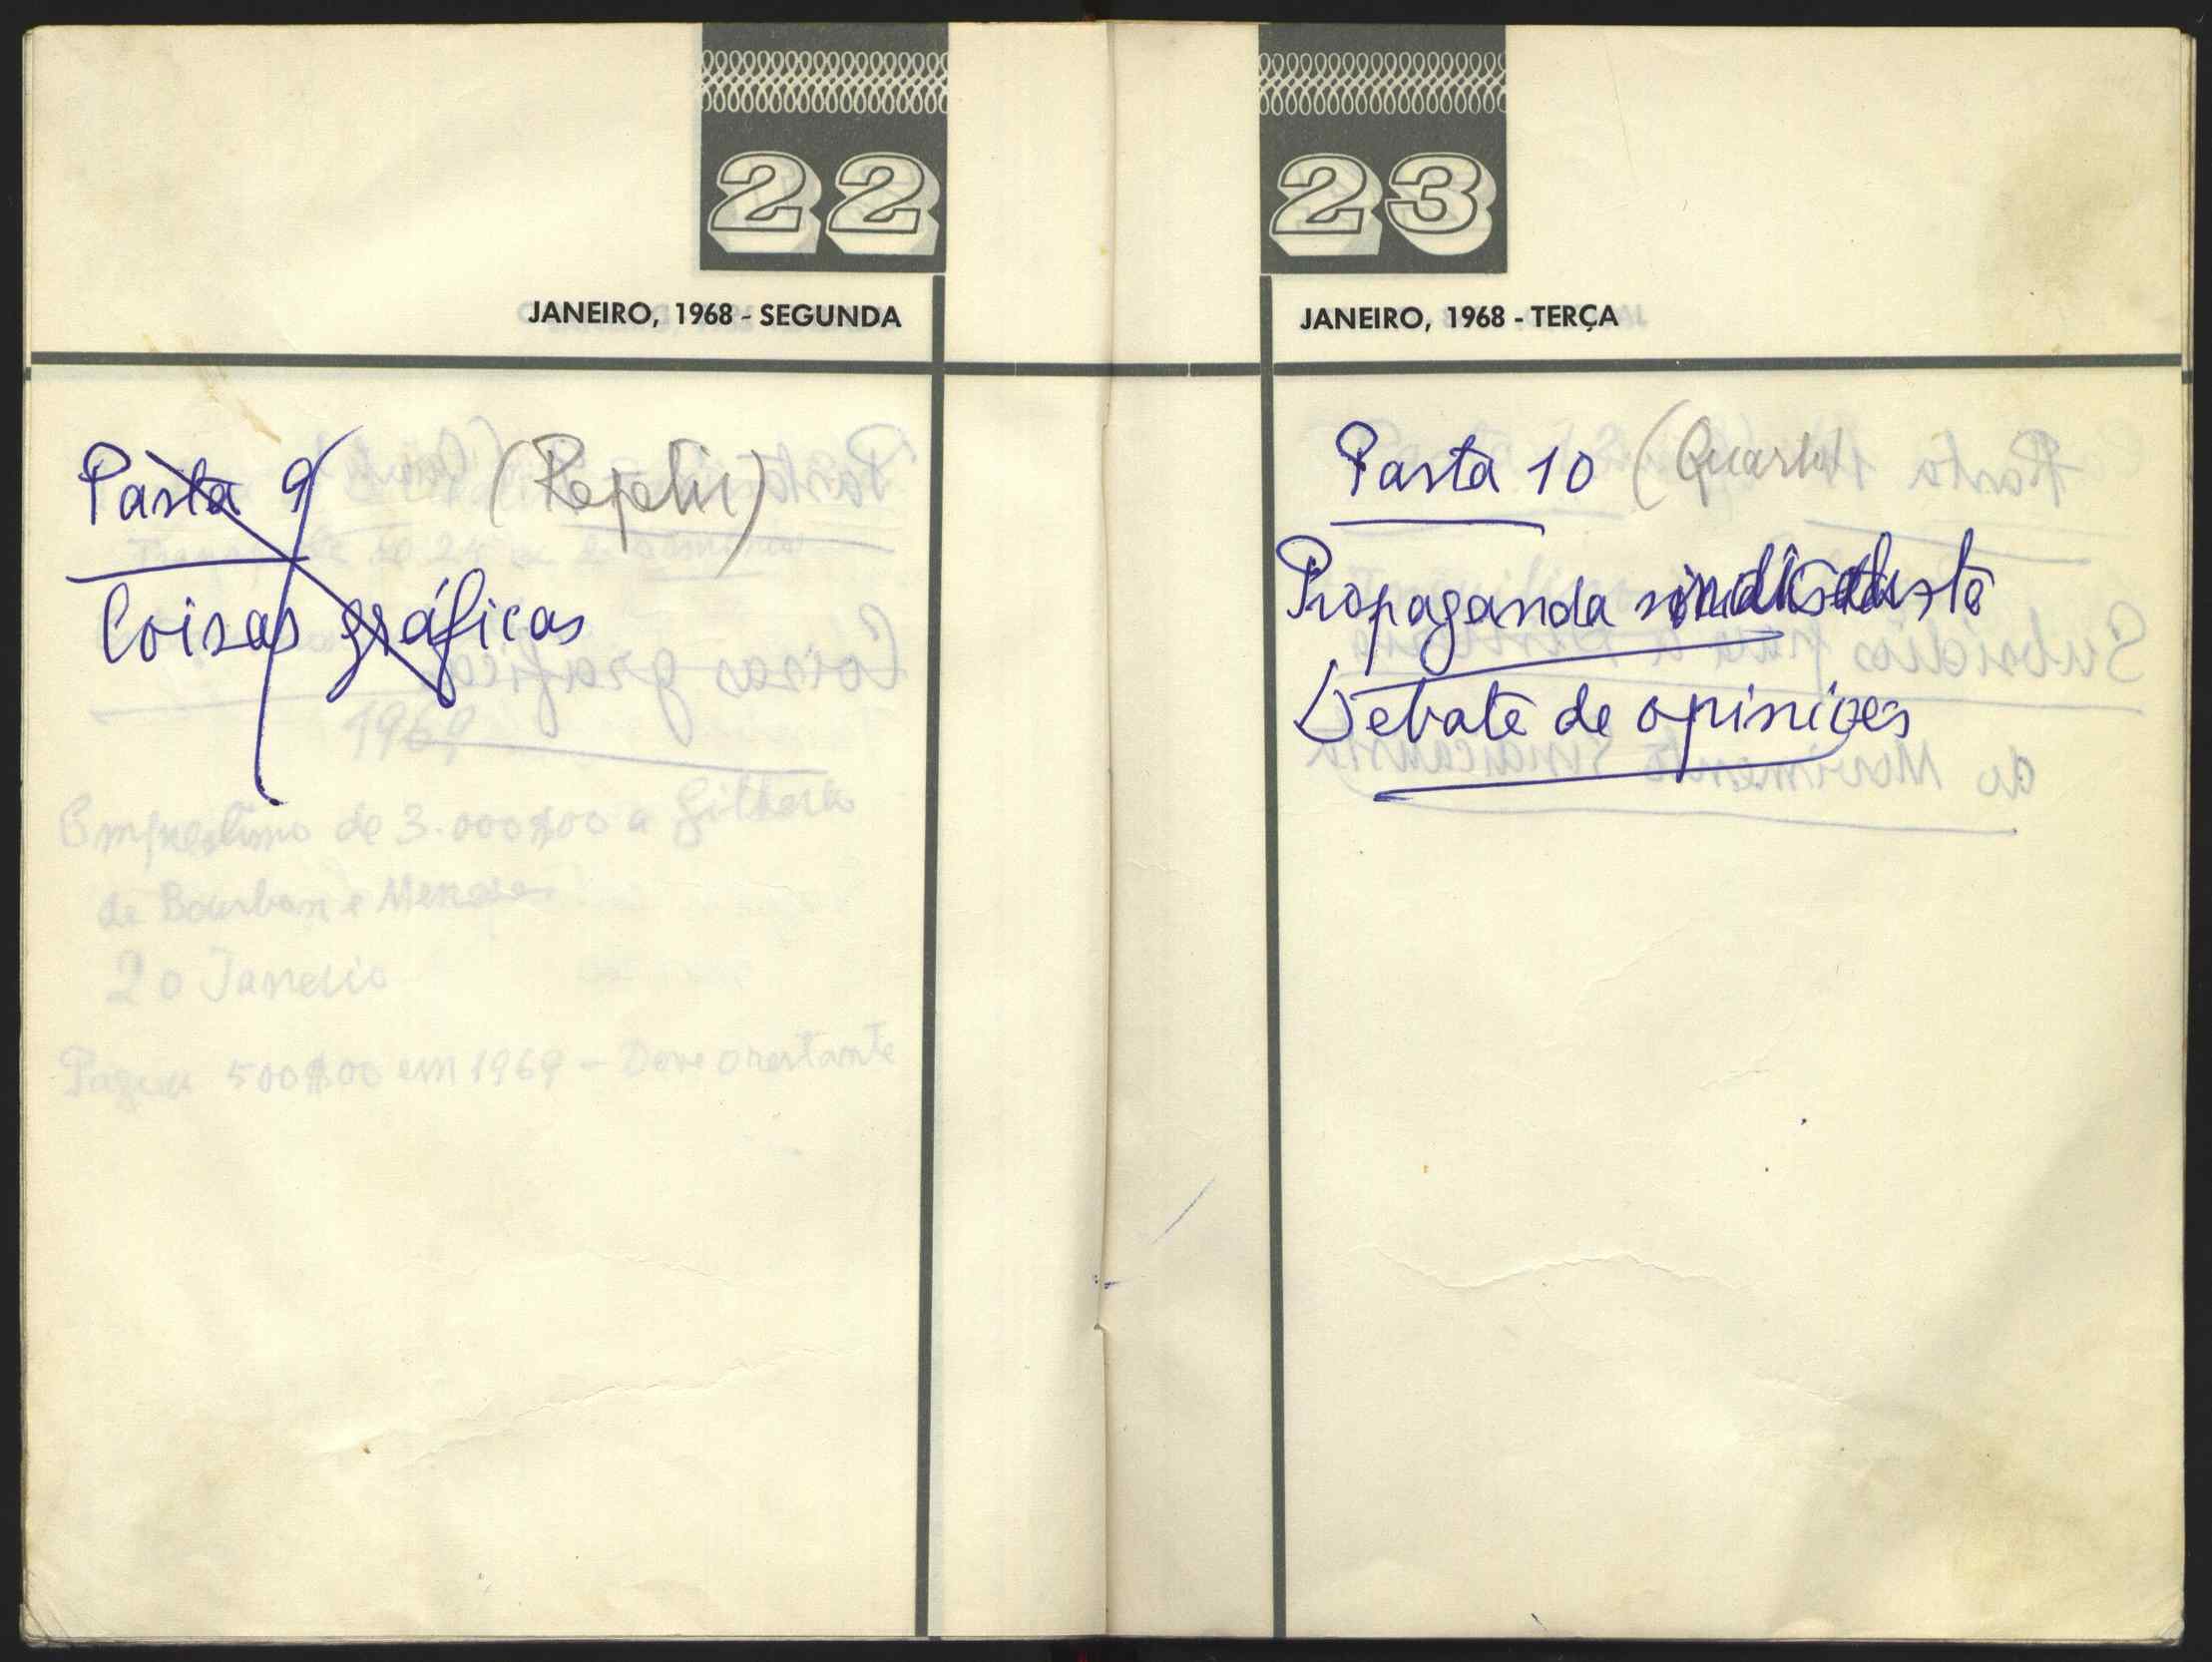 22
JANEIRO, 1968 - SEGUNDA
Pasta 9 (Repetir)
Coisas gráficas
1969
Emprestimo de 3.000$00 a Gilberto
de Bourbon e Menezes
20 Janeiro
Pagou 500$00 em 1969 - Deve o restante
23
JANEIRO, 1968 - TERÇA
Pasta 10 (Quarto)
Propaganda sindicalista
Debate de opiniões